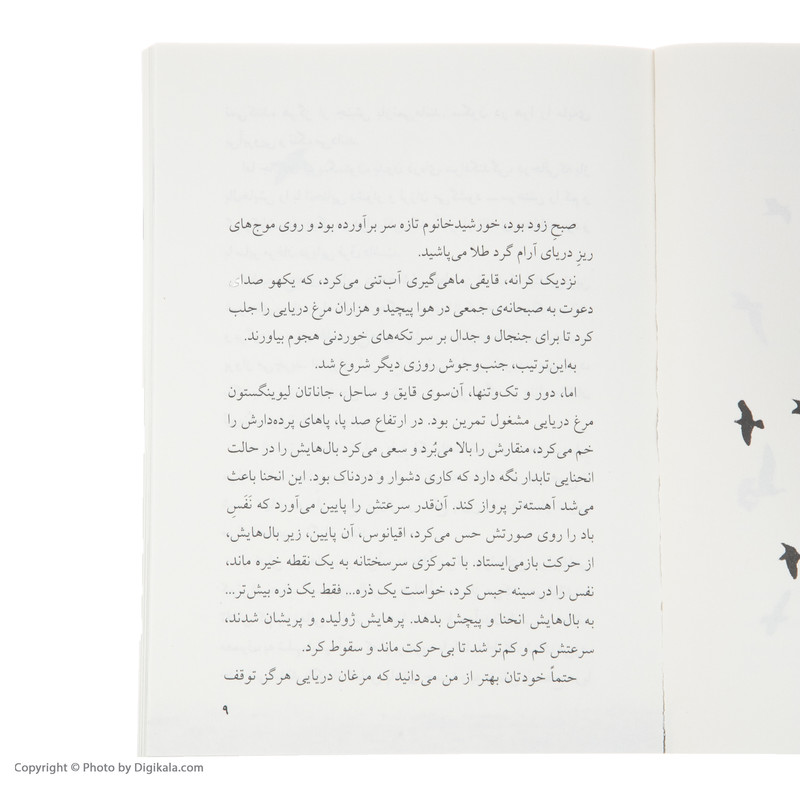 صبحِ زود بود، خورشیدخانوم تازه سر برآورده بود و روی موج‌های
ریز دریای آرام گرد طلا می‌پاشید.
نزدیک کرانه، قایقی ماهی‌گیری آب‌تنی می‌کرد، که یکهو صدای
دعوت به صبحانه‌ی جمعی در هوا پیچید و هزاران مرغ دریایی را جلب
کرد تا برای جنجال و جدال بر سر تکه‌های خوردنی هجوم بیاورند.
به‌این‌ترتیب، جنب‌وجوش روزی دیگر شروع شد.
اما، دور و تک‌وتنها، آن‌سوی قایق و ساحل، جاناتان لیوینگستون
مرغ دریایی مشغول تمرین بود. در ارتفاع صد پا، پاهای پرده‌دارش را
خم می‌کرد، منقارش را بالا می‌بُرد و سعی می‌کرد بال‌هایش را در حالت
انحنایی تابدار نگه دارد که کاری دشوار و دردناک بود. این انحنا باعث
می‌شد آهسته‌تر پرواز کند. آن‌قدر سرعتش را پایین می‌آورد که نَفَسِ
باد را روی صورتش حس می‌کرد، اقیانوس، آن پایین، زیر بال‌هایش،
از حرکت بازمی‌ایستاد. با تمرکزی سرسختانه به یک نقطه خیره ماند،
نفس را در سینه حبس کرد، خواست یک ذره... فقط یک ذره بیش‌تر...
به بال‌هایش انحنا و پیچش بدهد. پرهایش ژولیده و پریشان شدند،
سرعتش کم و کم‌تر شد تا بی‌حرکت ماند و سقوط کرد.
حتماً خودتان بهتر از من می‌دانید که مرغان دریایی هرگز توقف
۹
Copyright © Photo by Digikala.com